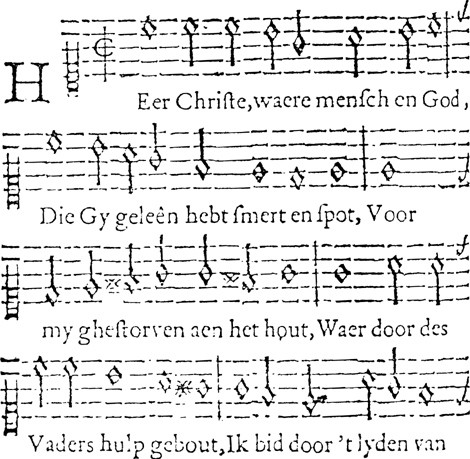 HEer Chriſte, waere menſch en God,
Die Gy geleên hebt ſmert en ſpot, Voor
my gheſtorven aen het hout, Waer door des
Vaders hulp gebout, Ik bid door 't lyden van